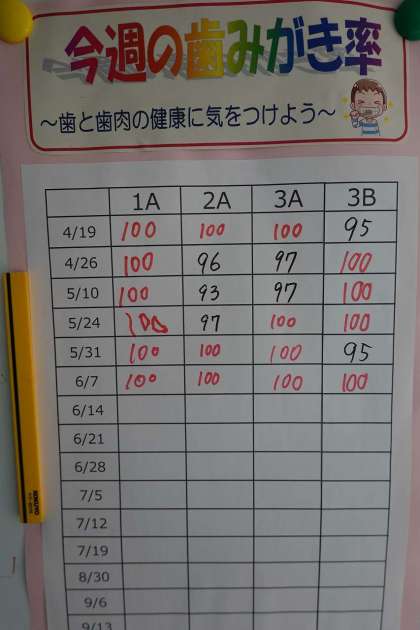 今週の歯みがき率
～歯と歯肉の健康に気をつけよう～
1A 2A 3A 3B
4/19 100 100 100 95
4/26 100 96 97 100
5/10 100 93 97 100
5/24 100 97 100 100
5/31 100 100 100 95
6/7 100 100 100 100
6/14
6/21
6/28
7/5
7/12
7/19
8/30
9/6
9/13
KOKUYO